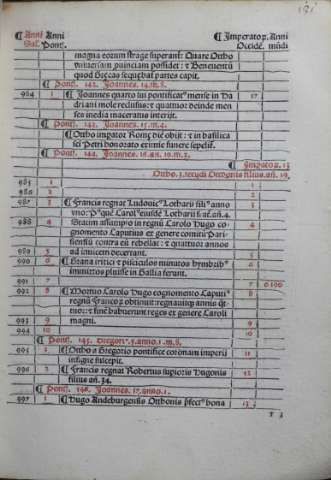 Anni Anni
Sal. Pont.
Imperator. Anni
Occidē. mūdi
magna eorum strage superant: Quare Ottho
vniuersam prouinciam possidet: & Beneuentū
quod Graecos sequebat partes capit.
Pont. 142. Joannes. 14. m. 8.
984 1 Joannes quarto sui pontificat mense in Ha
driani mole reclusus: & quattuor deinde men
ses inedia maceratus interijt.
17
Pont. 143. Joannes. 15. m. 4.
Ottho imperator Romę diē obijt: & in basilica
sci Petri honorato eximie funere sepelit.
Pont. 144. Joannes. 15. an. 10. m. 3.
Impator a. 13
Ottho. 3. secūdi Otthonis filius. añ. 19.
985 1 1
986 2 2
987 3 Francis regnat Ludouic Lotharii fili anno
vno: P que Carol eiusdē Lotharii f. añ. 4.
3
988 4 Statim assumpto in regnū Carolo Hugo co
gnomento Caputius ex genere comitū Pari
siensiū contra eū rebellat: & quattuor annos
ad inuicem decertant.
4
989 5 5
990 6 Grana tritici & pisciculos minutos hymbrib
immixtos pluisse in Gallia ferunt.
6
991 7 7 6190
992 8 Mortuo Carolo Hugo cognomento Caputi
regnū Francor optinuit regnauitq annis qt
tuor: & fine habuerunt reges ex genere Caroli
magni.
8
993 9 9
994 10 10
Pont. 145. Gregori. 5. anno. 2. m. 5.
995 1 Ottho a Gregorio pontifice coronam imperii
insigne suscepit.
11
996 2 Francis regnat Robertus supiotis Hugonis
filius an. 34.
12
Pont. 146. Joannes. 17. anno. 1.
997 1 Hugo Andeburgensis Otthonis pfect bona
13
T 3